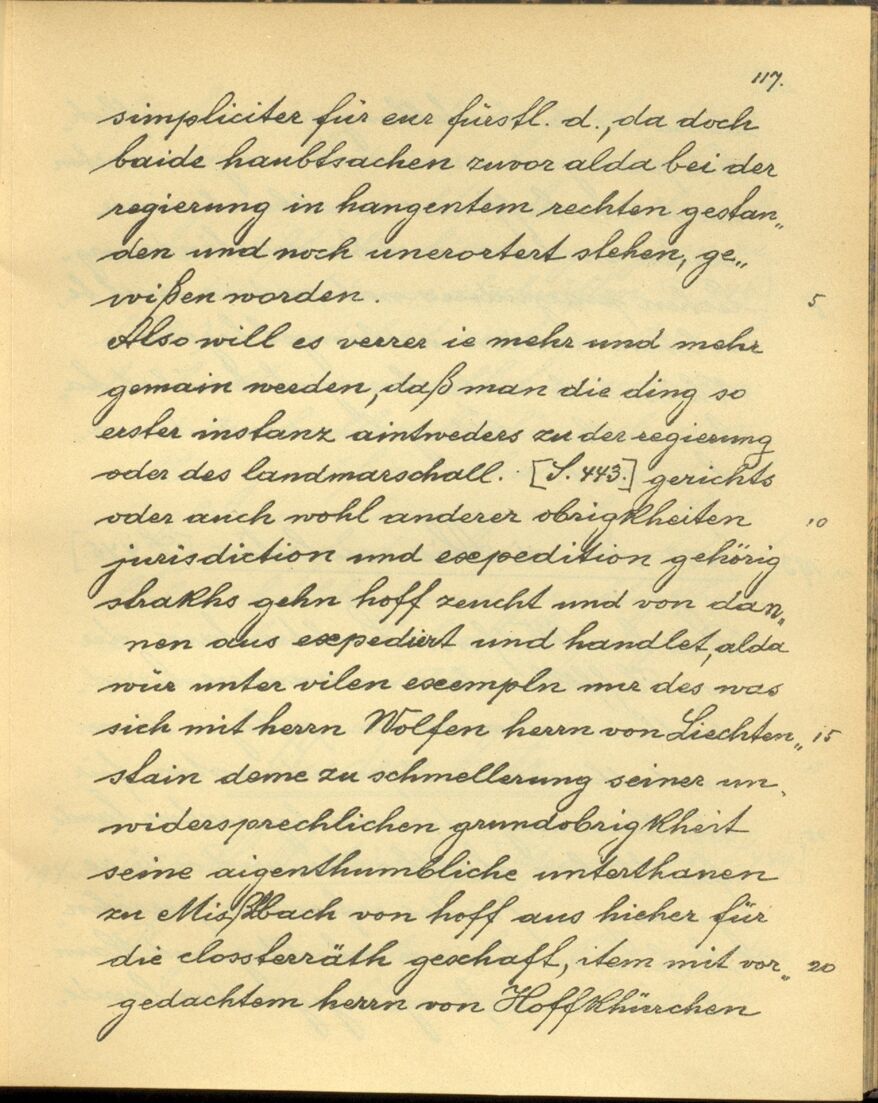 117.
simpliciter für eur fürstl. d., da doch
baide haubtsachen zuvor alda bei der
regierung in hangentem rechten gestan„
den und noch unerortert stehen, ge„
wißen worden. 5
Also will es verrer ie mehr und mehr
gemain werden, daß man die ding so
erster instanz aintweders zu der regierung
oder des landmarschall. [S. 443.] gerichts
oder auch wohl anderer obrigkheiten 10
jurisdiction und expedition gehörig
strakhs gehn hoff zeucht und von dan„
nen aus expediert und handlet, alda
wür unter vilen exempln nur des was
sich mit herrn Wolfen herrn von Liechten„ 15
stain deme zu schmellerung seiner un„
widersprechlichen grundobrigkheit
seine aigenthumbliche unterthanen
zu Mißlbach von hoff aus hieher für
die clossterräth geschaft, item mit vor„ 20
gedachtem herrn von Hoffkhürchen